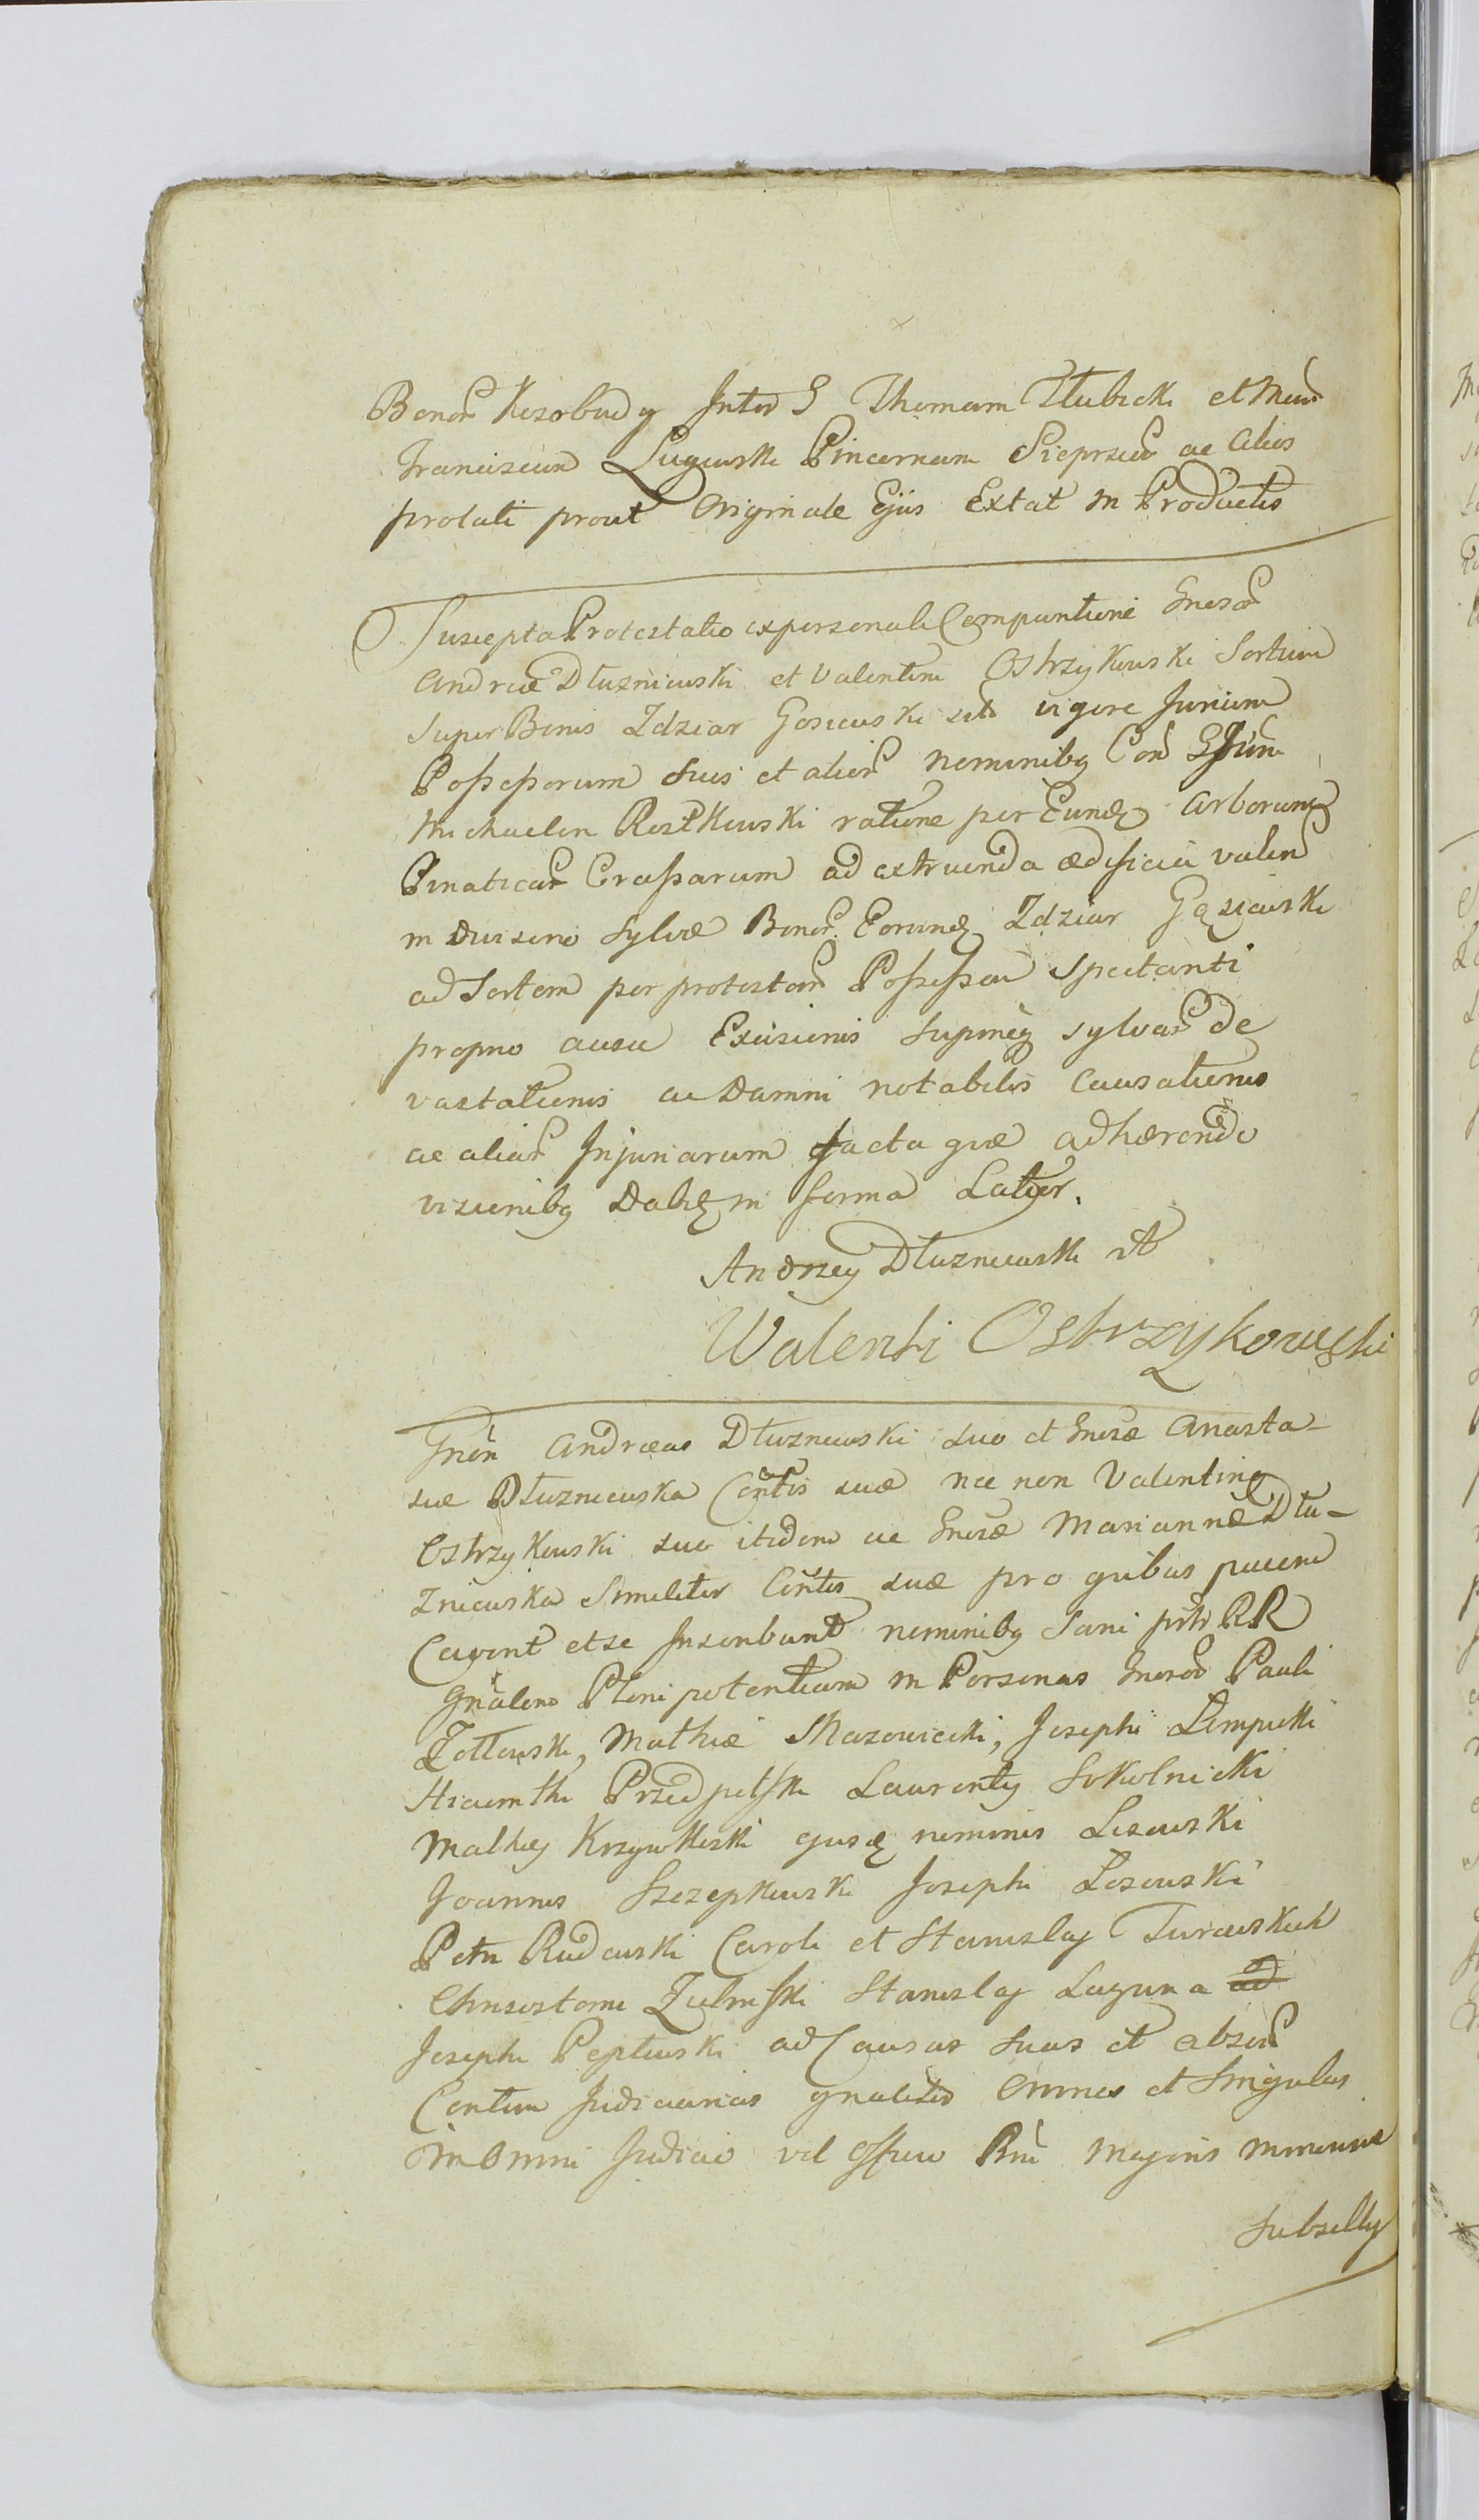 Bonor Kozobudy Inter G Thomam Tłubicki et
Franciscum Ługowski Pincernam Sieprscen ac Alios
prolati prout Originale Ejus Extat in Productis
Suscepta Protestatio ex personali Compartione Gneror
Andreæ Dłuzniewski et Valentini Ostrzykowski Sortium
super Bonis Zdziar Gosiewski vigore Jurium
Possessorum suis et alior nominibg Con
Michaelem Rostkowski ratione per Eundq Arborum
Pinaticar Crassarum ad extruenda ædificia valen
in Duiseno Sylvæ Bonor Eorundq Zdziar Gąsiewski
ad Sortem per protestan Possessam Spectanti
proprio ausu Excisionis Supmeq sylvar de
vastationis ac Damni notabilis Causationis
ac aliar Injuriarum facta quæ adhærendo
visionibg Dabitq in forma Latior.
Andrzey Dłuzniewski
Walenti Ostrzykowski
Gnen Andreas Dłuzniewski suo et Gnesæ Anasta-
siæ Dłuzniewska Contis suæ nec non Valenting
Ostrzykowski suo itidem ac Gnesæ Mariannæ Dłu-
zniewska Similiter Contis suæ pro quibus pacem
Cavent et se Inscribunt nominibg Sani RR
Gnalem Plenipotentiam in Personas Pauli
Zołtowski, Mathiæ Mazowiecki, Josephi Lempicki
Hiacinthi Przedpełski Laurenty Sokolnicki
Mathej Krzywkoski ejusq nominis Lisowski
Joannis Szczepkowski Josephi Losowski
Petri Rudowski Caroli et Stanislaj Turowskich
Chrisostomi Zielinski Stanislaj Laguna ad
Josephi Peplowski ad Causas suas et
Contim Judiciarias gnaliter Omnes et Singulas
in Omni Judicio vel Officio Rni Majoris minorisve
Subselly